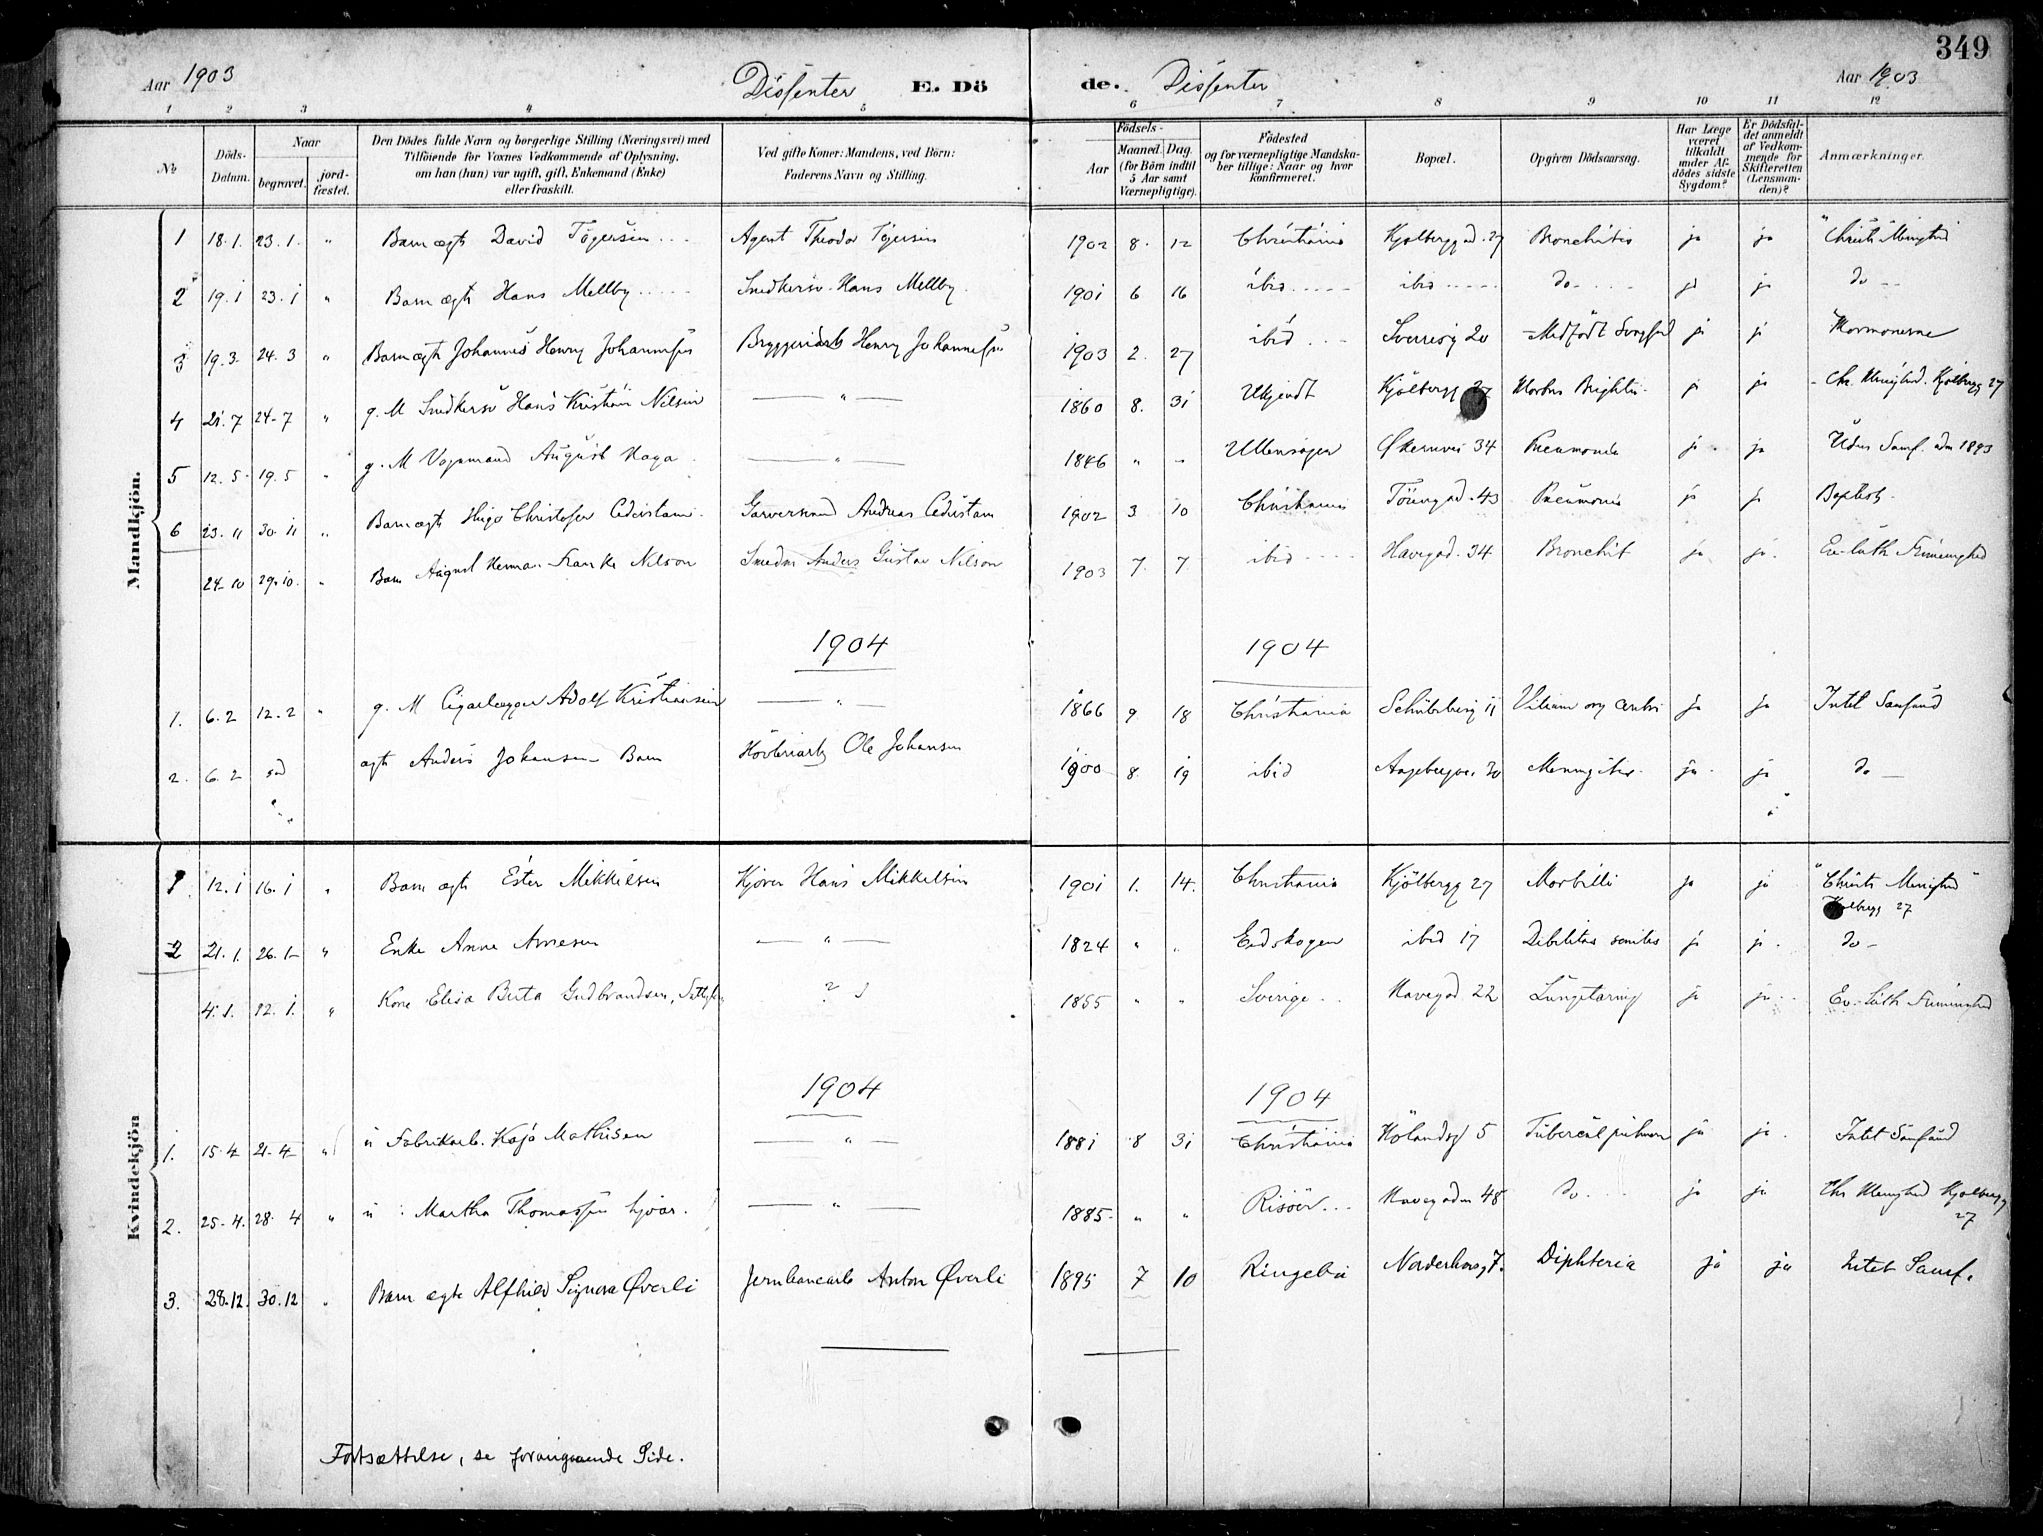 349
Aar 1903 Dissenter E. Dö de. Dissenter Aar 1903
1 2 3 4 5 6 7 8 9 10 11 12
No
Döds-Datum.
Naar begravet. jordfæstet.
Den Dödes fulde Navn og borgerlige Stilling (Næringsvei) med Tilföiende for Voxnes Vedkommende af Oplysning, om han (hun) var ugift, gift, Enkemand (Enke) eller fraskilt.
Ved gifte Koner: Mandens, ved Börn: Faderens Navn og Stilling.
Födsels- Aar Maaned. Dag. (for Börn indtil 5 Aar samt Værnepligtige).
Födested og for værnepligtige Mandskaber tillige: Naar og hvor konfirmeret.
Bopæl.
Opgiven Dödsaarsag.
Har Læge været tilkaldt under Afdödes sidste Sygdom?
Er Dödsfaldet anmeldt af Vedkommende for Skifteretten (Lensmanden)?
Anmærkninger.
Mandkjön.
1 18.1. 23.1. " Barn ægte David Tögersen Agent Theodor Tögersen 1902 8. 12 Christiania Kjølberggad. 27 Bronchitis ja ja "Christi Menighed
2 19.1 23.1 " Barn ægte Hans Mellby Snedkersv. Hans Mellby 1901 6 16 ibid ibid do ja ja do
3 19.3. 24.3 " Barn ægte Johannes Henry Johannesen Bryggeriarb Henry Johannesen 1903 2. 27 ibid Sverresg 20 Medfödt ja ja Mormonerne
4 21.7 24-7 " g. M Snedkersv Hans Kristian Nilsen — " — 1860 8. 31 Ukjendt Kjölbergg 27 Morbus Brightii ja ja Chr. Menighed. Kjølbergg 27
5 12.5. 19.5 " g. M Vognmand August Haga — " — 1846 " - Ullensager Økernvei 34 Pneumonia ja ja Udm 1893
6 23.11 30.11 " Barn ægte Hugo Christofer Garversvend Andreas 1902 3 10 Christiania Töiengad. 43 Pneumonia ja ja Baptist
24-10 29.10. " Barn August Herman Frank Nilson Smedm Anders Gustav Nilson 1903 7. 7 ibid Havegad. 34 Bronchit ja ja. Ev-luth Frimenighed
1904 1904
1. 6.2 12.2 " g. M Cigarlægger Adolf Kristiansen — " — 1866 9 18 Christiania Schübelersg 11 Vitium org cordis ja ja Intet Samfund
2. 6.2 ægte Anders Johansen Barn Høvleriarb Ole Johansen 1900 8. 19 ibid Aagebergvei 30 Meningitis ja ja do
Kvindekjön
1 12.1 16.1 " Barn ægte Ester Mikkelsen Kjører Hans Mikkelsen 1901 1. 14. Christiania Kjölbergg 27 Morbilli ja ja "Christi Menighed" Kjølbergg 27
2 21.1. 26.1- " Enke Anne Arnesen — " — 1824 " " Eidskogen ibid 17 Debilitas senilis ja ja. do
4.1. 12.1. " Kone Elisa Berta Gudbrandsen, ? 1855 " " Sverige Havegad 22 Lungetæring ja ja Ev.-luth Frimenighed
1904 1904
1. 15.4 21-4 " ú Fabrikarb. Kaja Mathisen — " — 1881 8 31 Christiania Hölandsg 5 Tubercul pulmon ja ja. Intet Samfund
2. 25-4. 28.4 " ú Martha Thomassen — " — 1885 " " Risöer Havegaden 48 do ja ja Chr Menighed Kjølbergg 27
3. 28.12. 30.12 " Barn ægte Alfhild Signora Øverli Jernbanearb Anton Øverli 1895 7 10 Ringebu Norderhovsg 7. Diphteria ja ja Intet Samf.
Fortsættelse, se forangaaende Side.